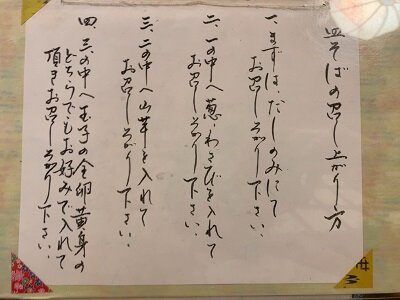 皿そばの召し上がり方
一、まずは、だしのみにて
お召し上がり下さい、
二、一の中へ葱、わさびを入れて
お召し上がり下さい、
三、二の中へ山芋を入れて
お召し上がり下さい、
四、三の中へ玉子の全卵黄身の
どちらでもお好みで入れて
頂きお召し上がり下さい、